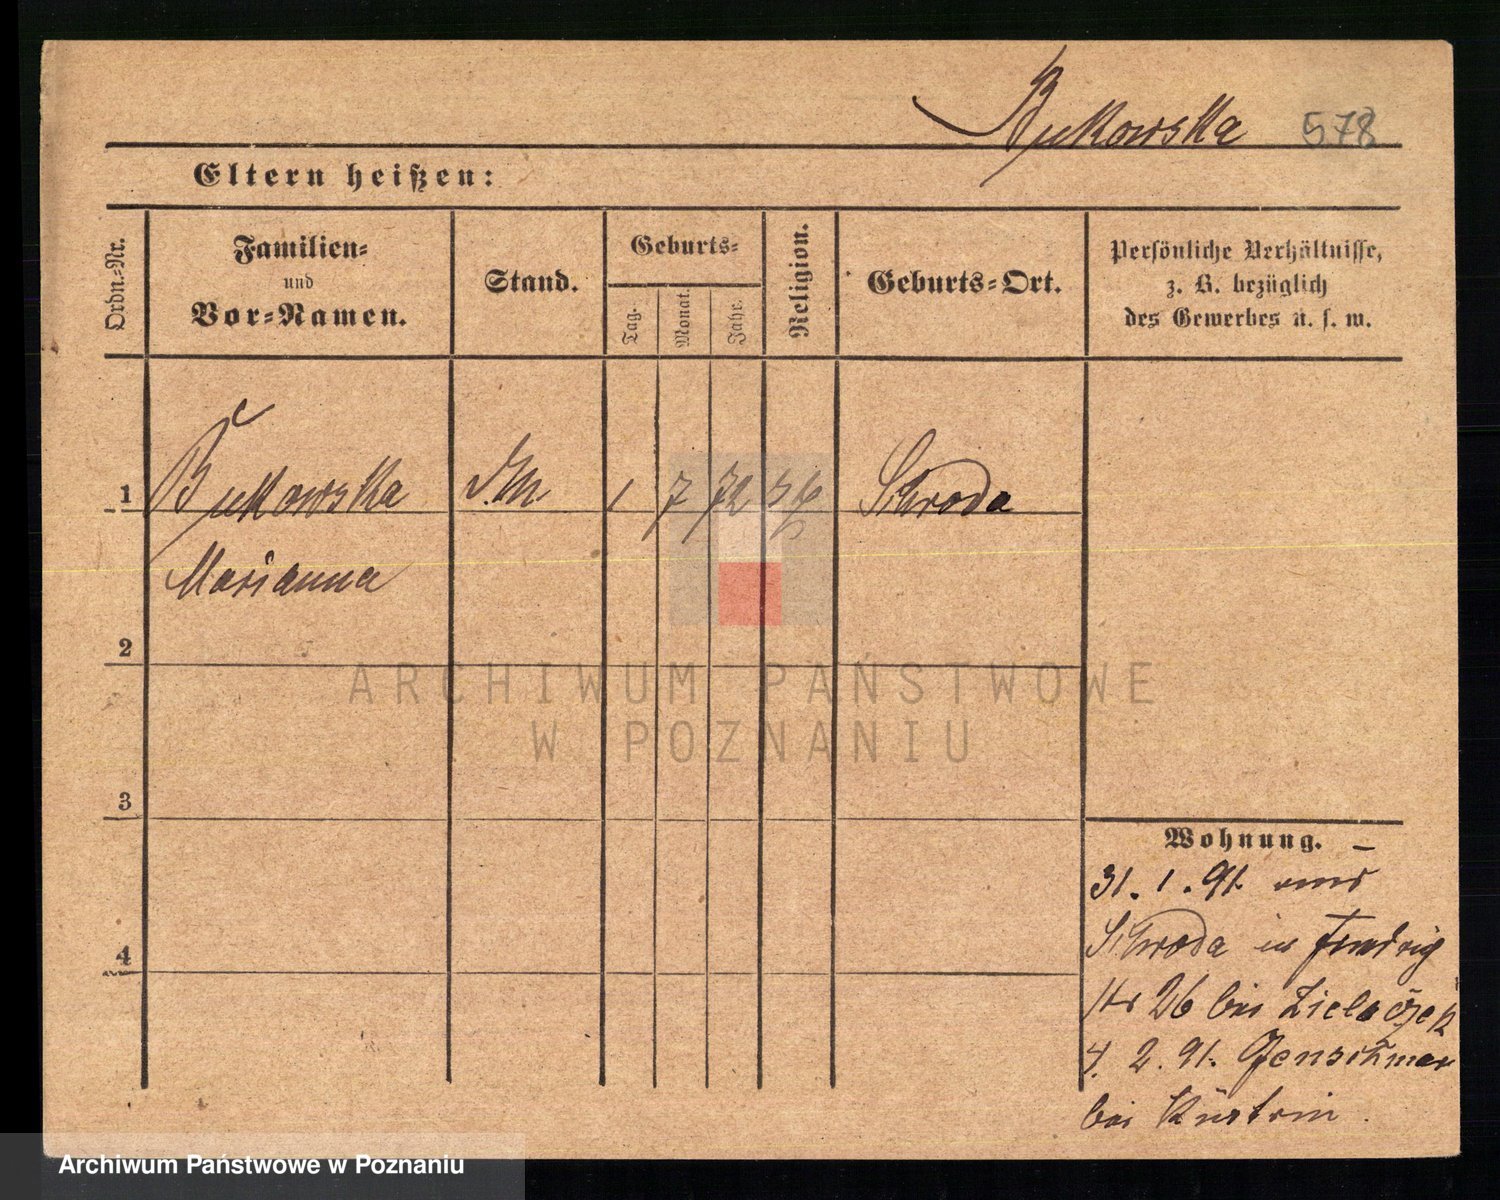 Bukowska 578
Eltern heißen:
Ordn.-Nr.
Familien-
und
Vor-Namen.
Stand.
Geburts-
Tag.
Monat.
Jahr.
Religion.
Geburts-Ort.
Persönliche Verhältnisse,
z. B. bezüglich
des Gewerbes u. s. w.
1 Bukowska 1 7 72 Schroda
Marianna
2
3
4
Wohnung.
31. 1. 91. aus
Schroda in
26 bei
4. 2. 91. Genschmar
bei Küstrin.
ARCHIWUM PAŃSTWOWE
W POZNANIU
Archiwum Państwowe w Poznaniu